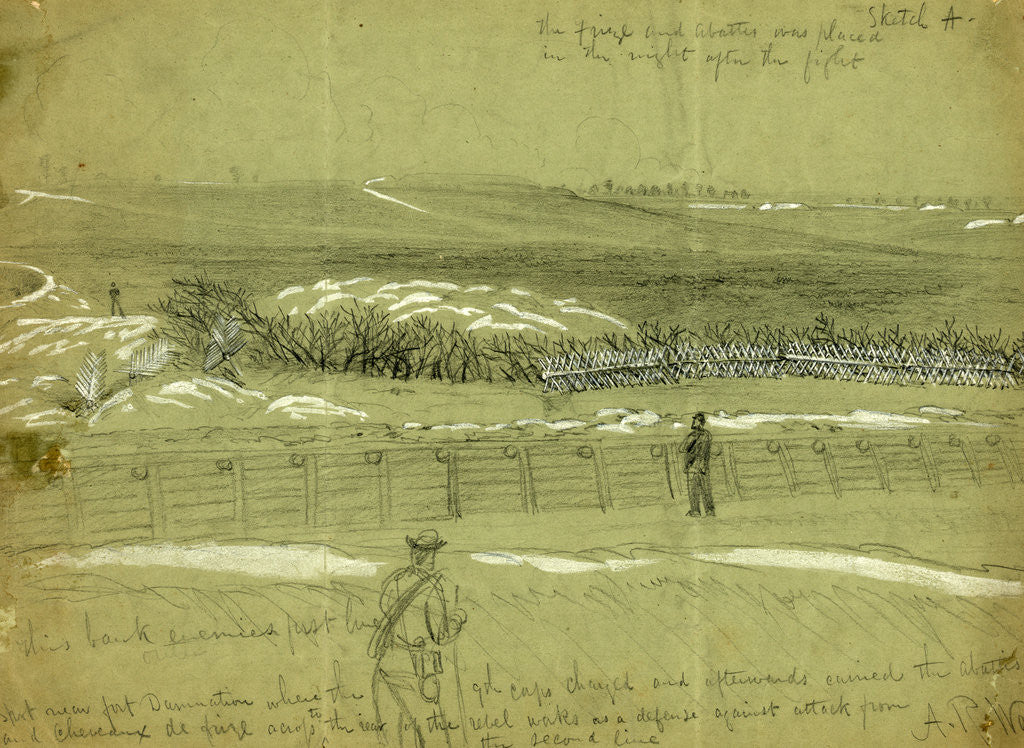 Sketch A-
the frize and abattis was placed
in the night after the fight
this bank enemies first line
outer
Spot near fort Damnation where the 9th corps charged and afterwards carried the abattis
and cheveaux de frize across to the rear of the rebel works as a defense against attack from
the second line
A. R. W